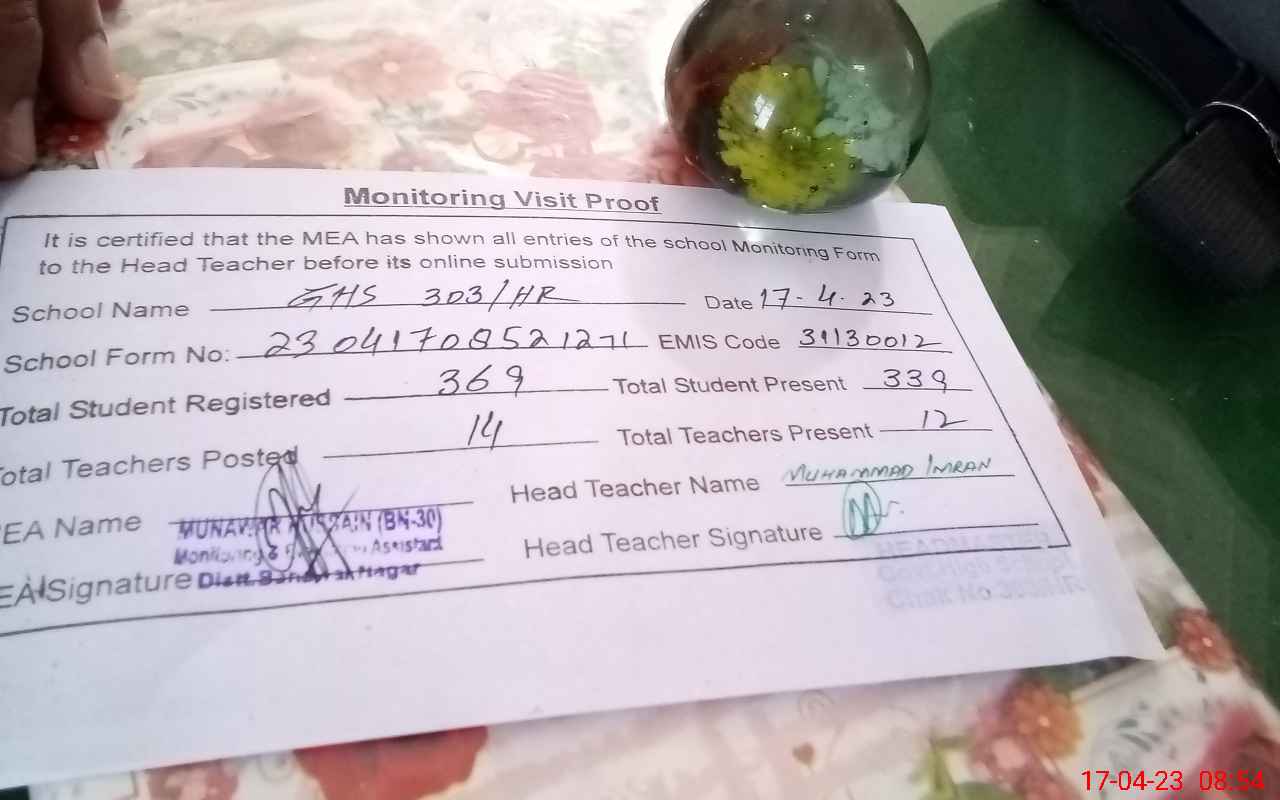 Monitoring Visit Proof
It is certified that the MEA has shown all entries of the school Monitoring Form
to the Head Teacher before its online submission
School Name GHS 303/HR Date 17-4-23
School Form No: 23041708521271 EMIS Code 31130012
Total Student Registered 369 Total Student Present 339
Total Teachers Posted 14 Total Teachers Present 12
EA Name MUNAWAR HUSSAIN (BN-30) Head Teacher Name MUHAMMAD IMRAN
Monitoring & Assistant
EA Signature Distt. Bahawalnagar Head Teacher Signature
HEADMASTER
Govt. High School
Chak No. 303/HR
17-04-23 08:54